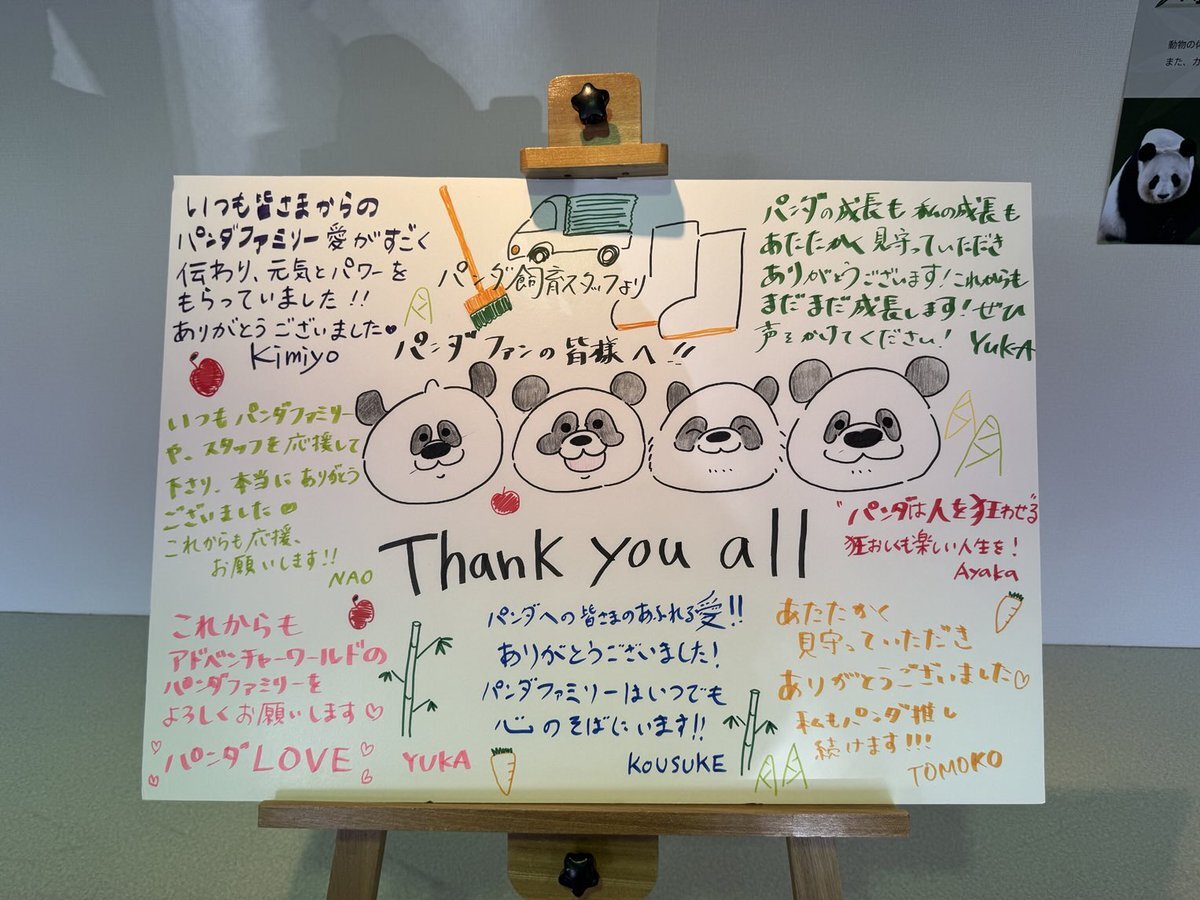 いつも皆さまからの
パンダファミリー愛がすごく
伝わり、元気とパワーを
もらっていました!!
ありがとうございました
Kimiyo
パンダ飼育スタッフより
パンダファンの皆様へ!!
パンダの成長も私の成長も
あたたかく見守っていただき
ありがとうございます!これからも
まだまだ成長します!ぜひ
声をかけてください! YUKA
いつもパンダファミリー
や、スタッフを応援して
下さり、本当にありがとう
ございました
これからも応援、
お願いします!!
NAO
Thank you all
"パンダは人を狂わせる
狂おしくも楽しい人生を!
Ayaka
これからも
アドベンチャーワールドの
パンダファミリーを
よろしくお願いします♡
パンダLOVE♡ YUKA
パンダへの皆さまのあふれる愛!!
ありがとうございました!
パンダファミリーはいつでも
心のそばにいます!!
KOUSUKE
あたたかく
見守っていただき
ありがとうございました♡
私もパンダ推し
続けます!!!
TOMOKO
動物の
また、カ